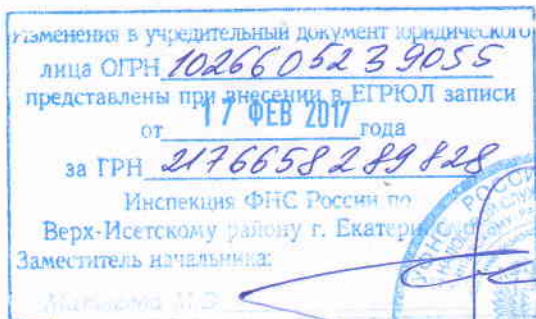 Изменения в учредительный документ юридического
лица ОГРН 1026605239055
представлены при внесении в ЕГРЮЛ записи
от 17 ФЕВ 2017 года
за ГРН 2176658289828
Инспекция ФНС России по
Верх-Исетскому району г.
Заместитель начальника: